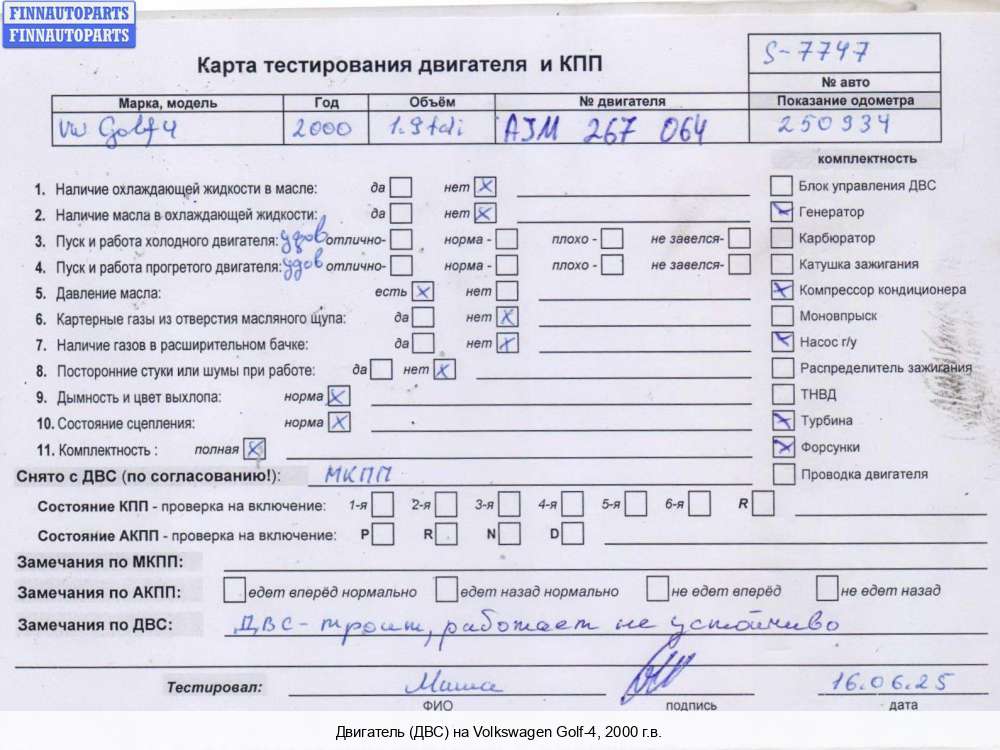 FINNAUTOPARTS
FINNAUTOPARTS
Карта тестирования двигателя и КПП
S-7747
№ авто
Марка, модель Год Объём № двигателя Показание одометра
VW Golf 4 2000 1.9 tdi AJM 267 064 250934
комплектность
1. Наличие охлаждающей жидкости в масле: да нет x Блок управления ДВС
2. Наличие масла в охлаждающей жидкости: да нет x Генератор
3. Пуск и работа холодного двигателя: удов отлично- норма - плохо - не завелся- Карбюратор
4. Пуск и работа прогретого двигателя: удов отлично- норма - плохо - не завелся- Катушка зажигания
5. Давление масла: есть x нет Компрессор кондиционера
6. Картерные газы из отверстия масляного щупа: да нет x Моновпрыск
7. Наличие газов в расширительном бачке: да нет x Насос г/у
8. Посторонние стуки или шумы при работе: да нет x Распределитель зажигания
9. Дымность и цвет выхлопа: норма x ТНВД
10. Состояние сцепления: норма x Турбина
11. Комплектность : полная x Форсунки
Снято с ДВС (по согласованию!): МКПП Проводка двигателя
Состояние КПП - проверка на включение: 1-я 2-я 3-я 4-я 5-я 6-я R
Состояние АКПП - проверка на включение: P R N D
Замечания по МКПП:
Замечания по АКПП: едет вперёд нормально едет назад нормально не едет вперёд не едет назад
Замечания по ДВС: ДВС - троит, работает не устойчиво
Тестировал: Миша 16.06.25
ФИО подпись дата
Двигатель (ДВС) на Volkswagen Golf-4, 2000 г.в.